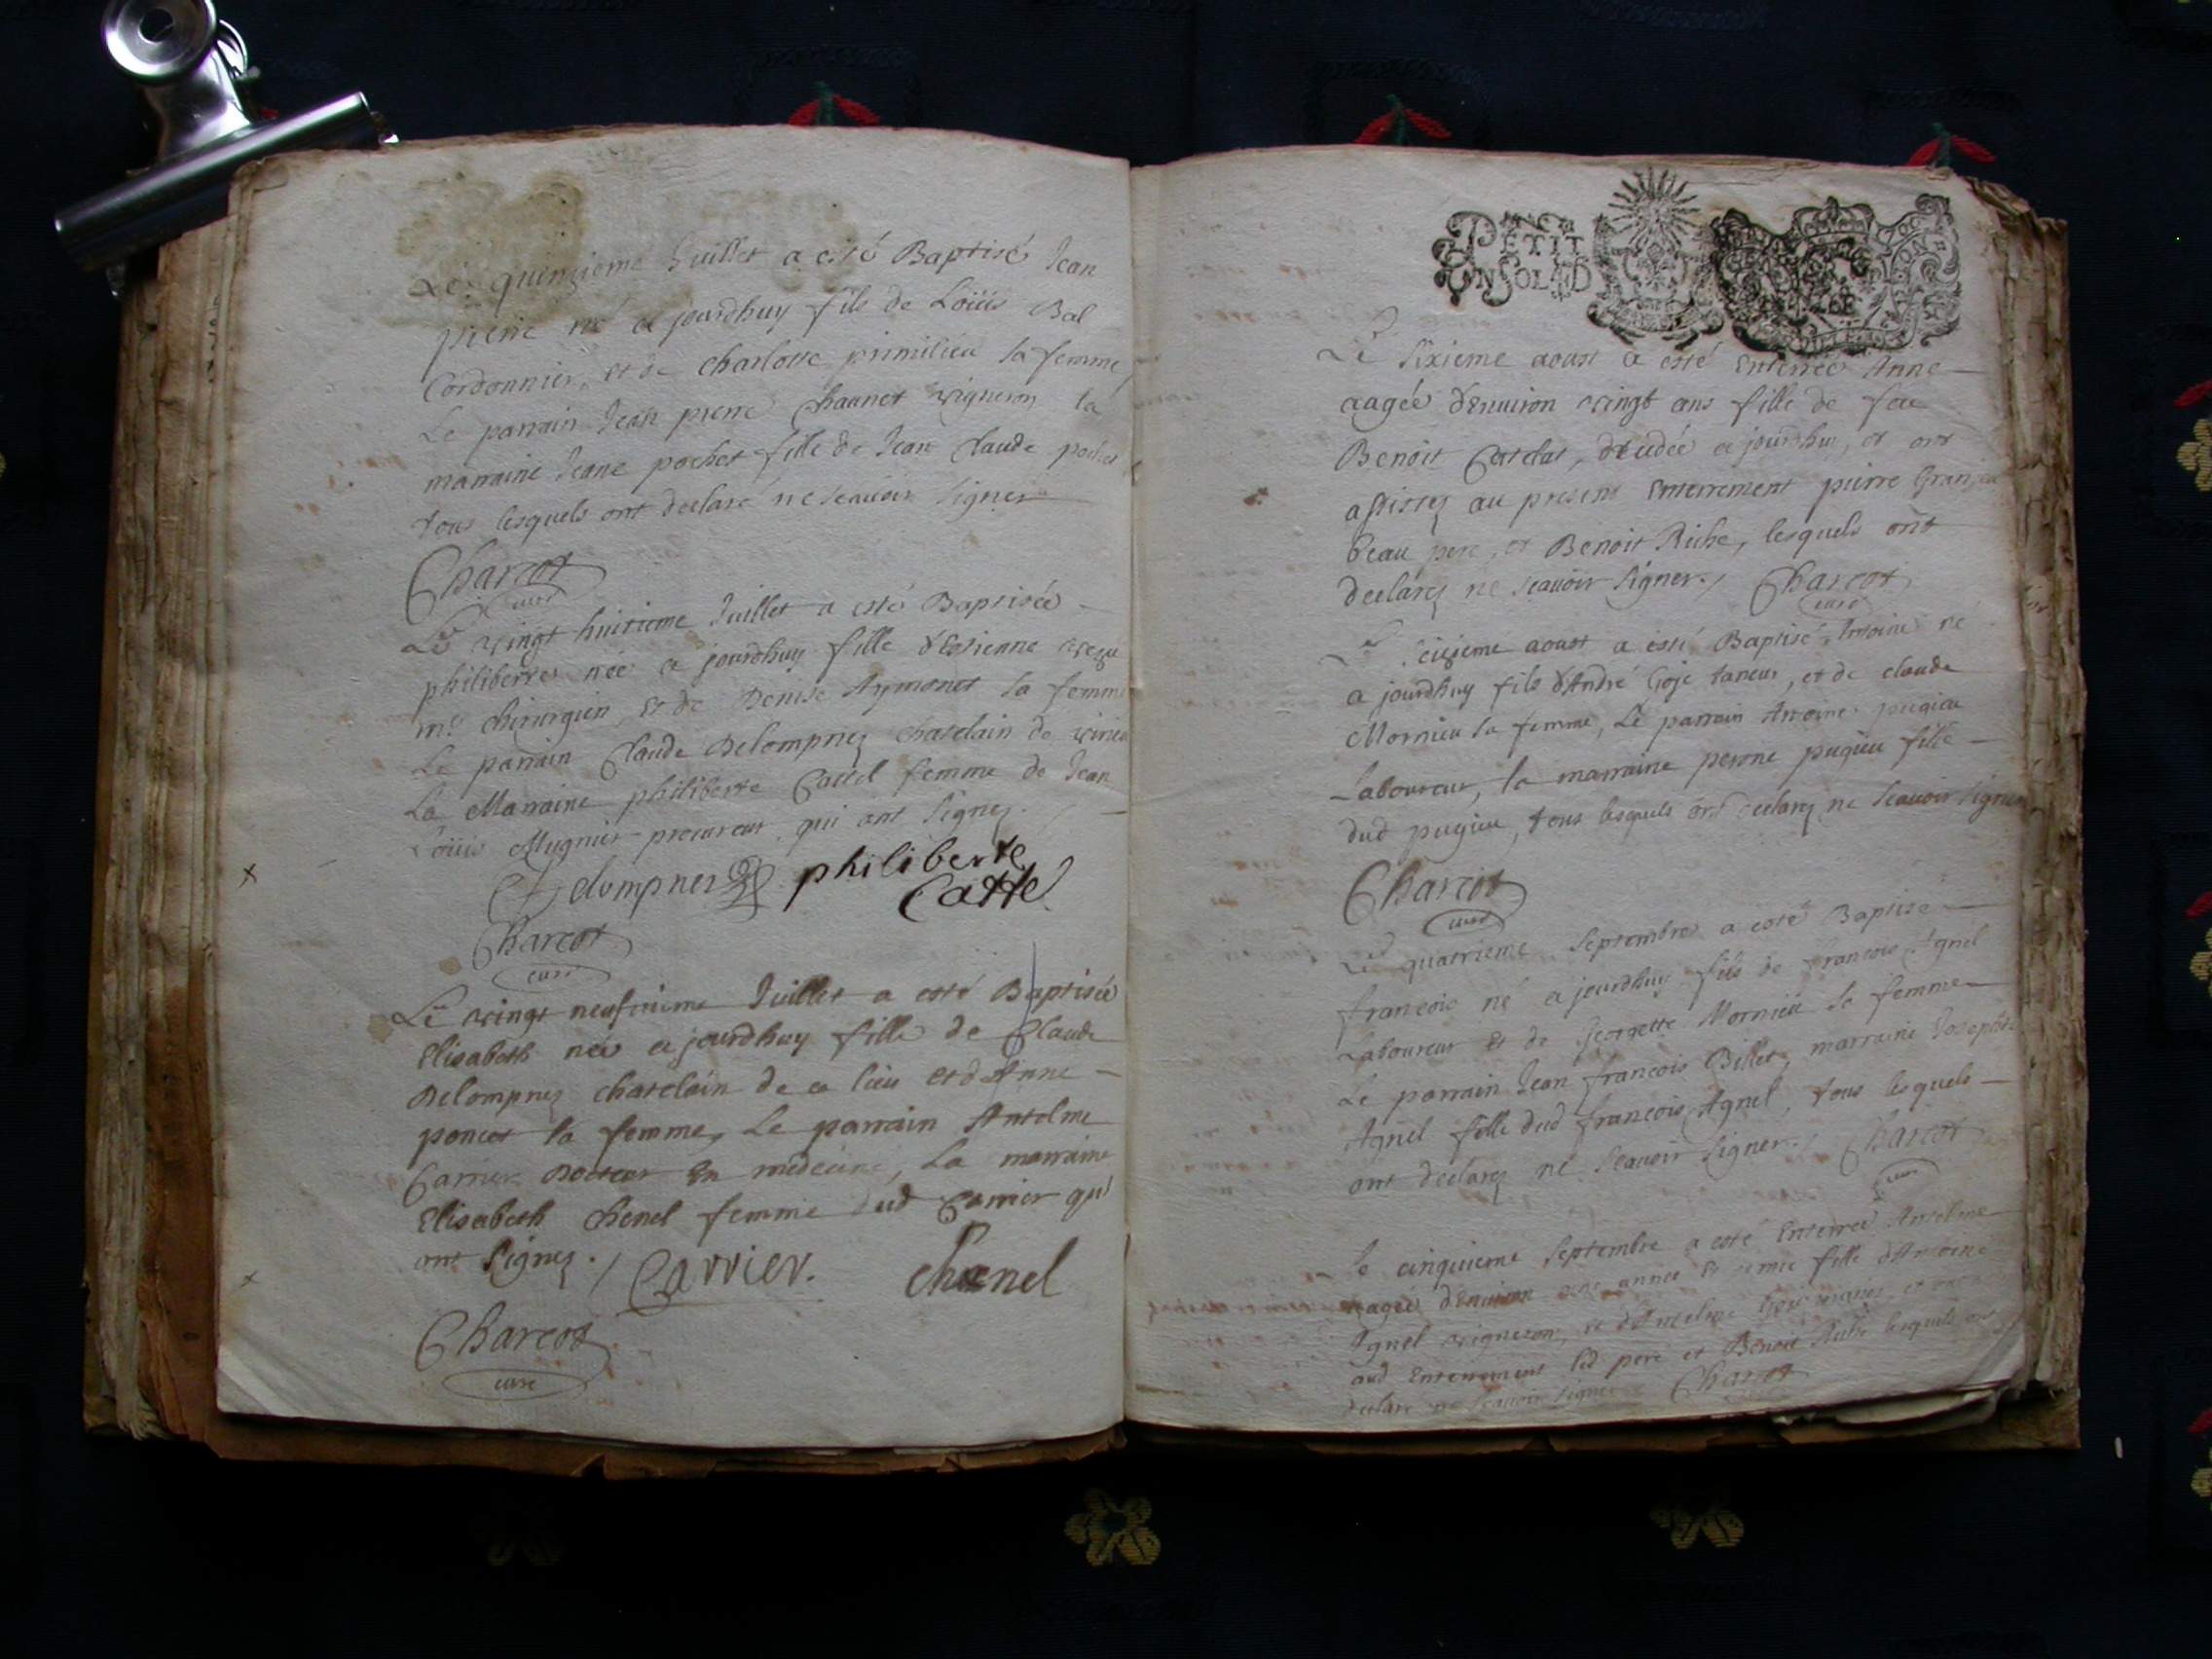 Le quinzieme Juillet a esté Baptisé Jean
pierre né cejourdhuy fils de Loüis Bal
Cordonnier, et de charlotte primilieu sa femme
Le parrain Jean pierre Chaunet vigneron la
marraine Jeane pochet fille de Jean Claude pochet
tous lesquels ont declaré ne scauoir signer
Charcot
curé
Le vingt huitieme Juillet a esté Baptisée
philiberte née cejourdhuy fille d'Estienne
me. chirurgien, et de Denise Aymonet sa femme
Le parrain Claude Delompnez chatelain de
La Marraine philiberte Cattel femme de Jean
Loüis Mugnier procureur qui ont signez.
Delompnez philiberte
Catte
Charcot
curé
Le vingt neufuieme Juillet a esté Baptisée
Elisabeth née cejourdhuy fille de Claude
Delompnez chatelain de ce lieu et d'Anne
poncet sa femme, Le parrain Antelme
Carrier Docteur En medecine, La marraine
Elisabeth Chenel femme dud Carrier qui
ont signez. / Carrier. Chenel
Charcot
curé
PETIT
ON SOL
Le sixieme aoust a esté Enterrée Anne
aagée d'Enuiron vingt ans fille de feu
Benoit Catelat, decedée cejourdhuy, et ont
assistez au present Enterrement pierre
beau pere, et Benoit Riche, lesquels ont
declarez ne scauoir signer. / Charcot
curé
Le seizieme aoust a esté Baptisé Antoine né
cejourdhuy fils d'André Goje taneur, et de claude
Mornieu sa femme, Le parrain Antoine pugieu
Laboureur, la marraine perone pugieu fille
dud pugieu, tous lesquels ont declarez ne scauoir signer
Charcot
curé
Le quatrieme Septembre a esté Baptisé
francois né cejourdhuy fils de francois Agnel
Laboureur et de georgette Mornieu sa femme
Le parrain Jean francois Billet, marraine Josephte
Agnel fille dud francois Agnel, tous lesquels
ont declarez ne scauoir signer. / Charcot
curé
Le cinquieme Septembre a esté Enterrée Antelme
aagée d'Enuiron une année et demie fille d'Antoine
Agnel vigneron, et d'Antelme
aud Enterrement led pere et Benoit Riche lesquels ont
declaré ne scauoir signer Charcot